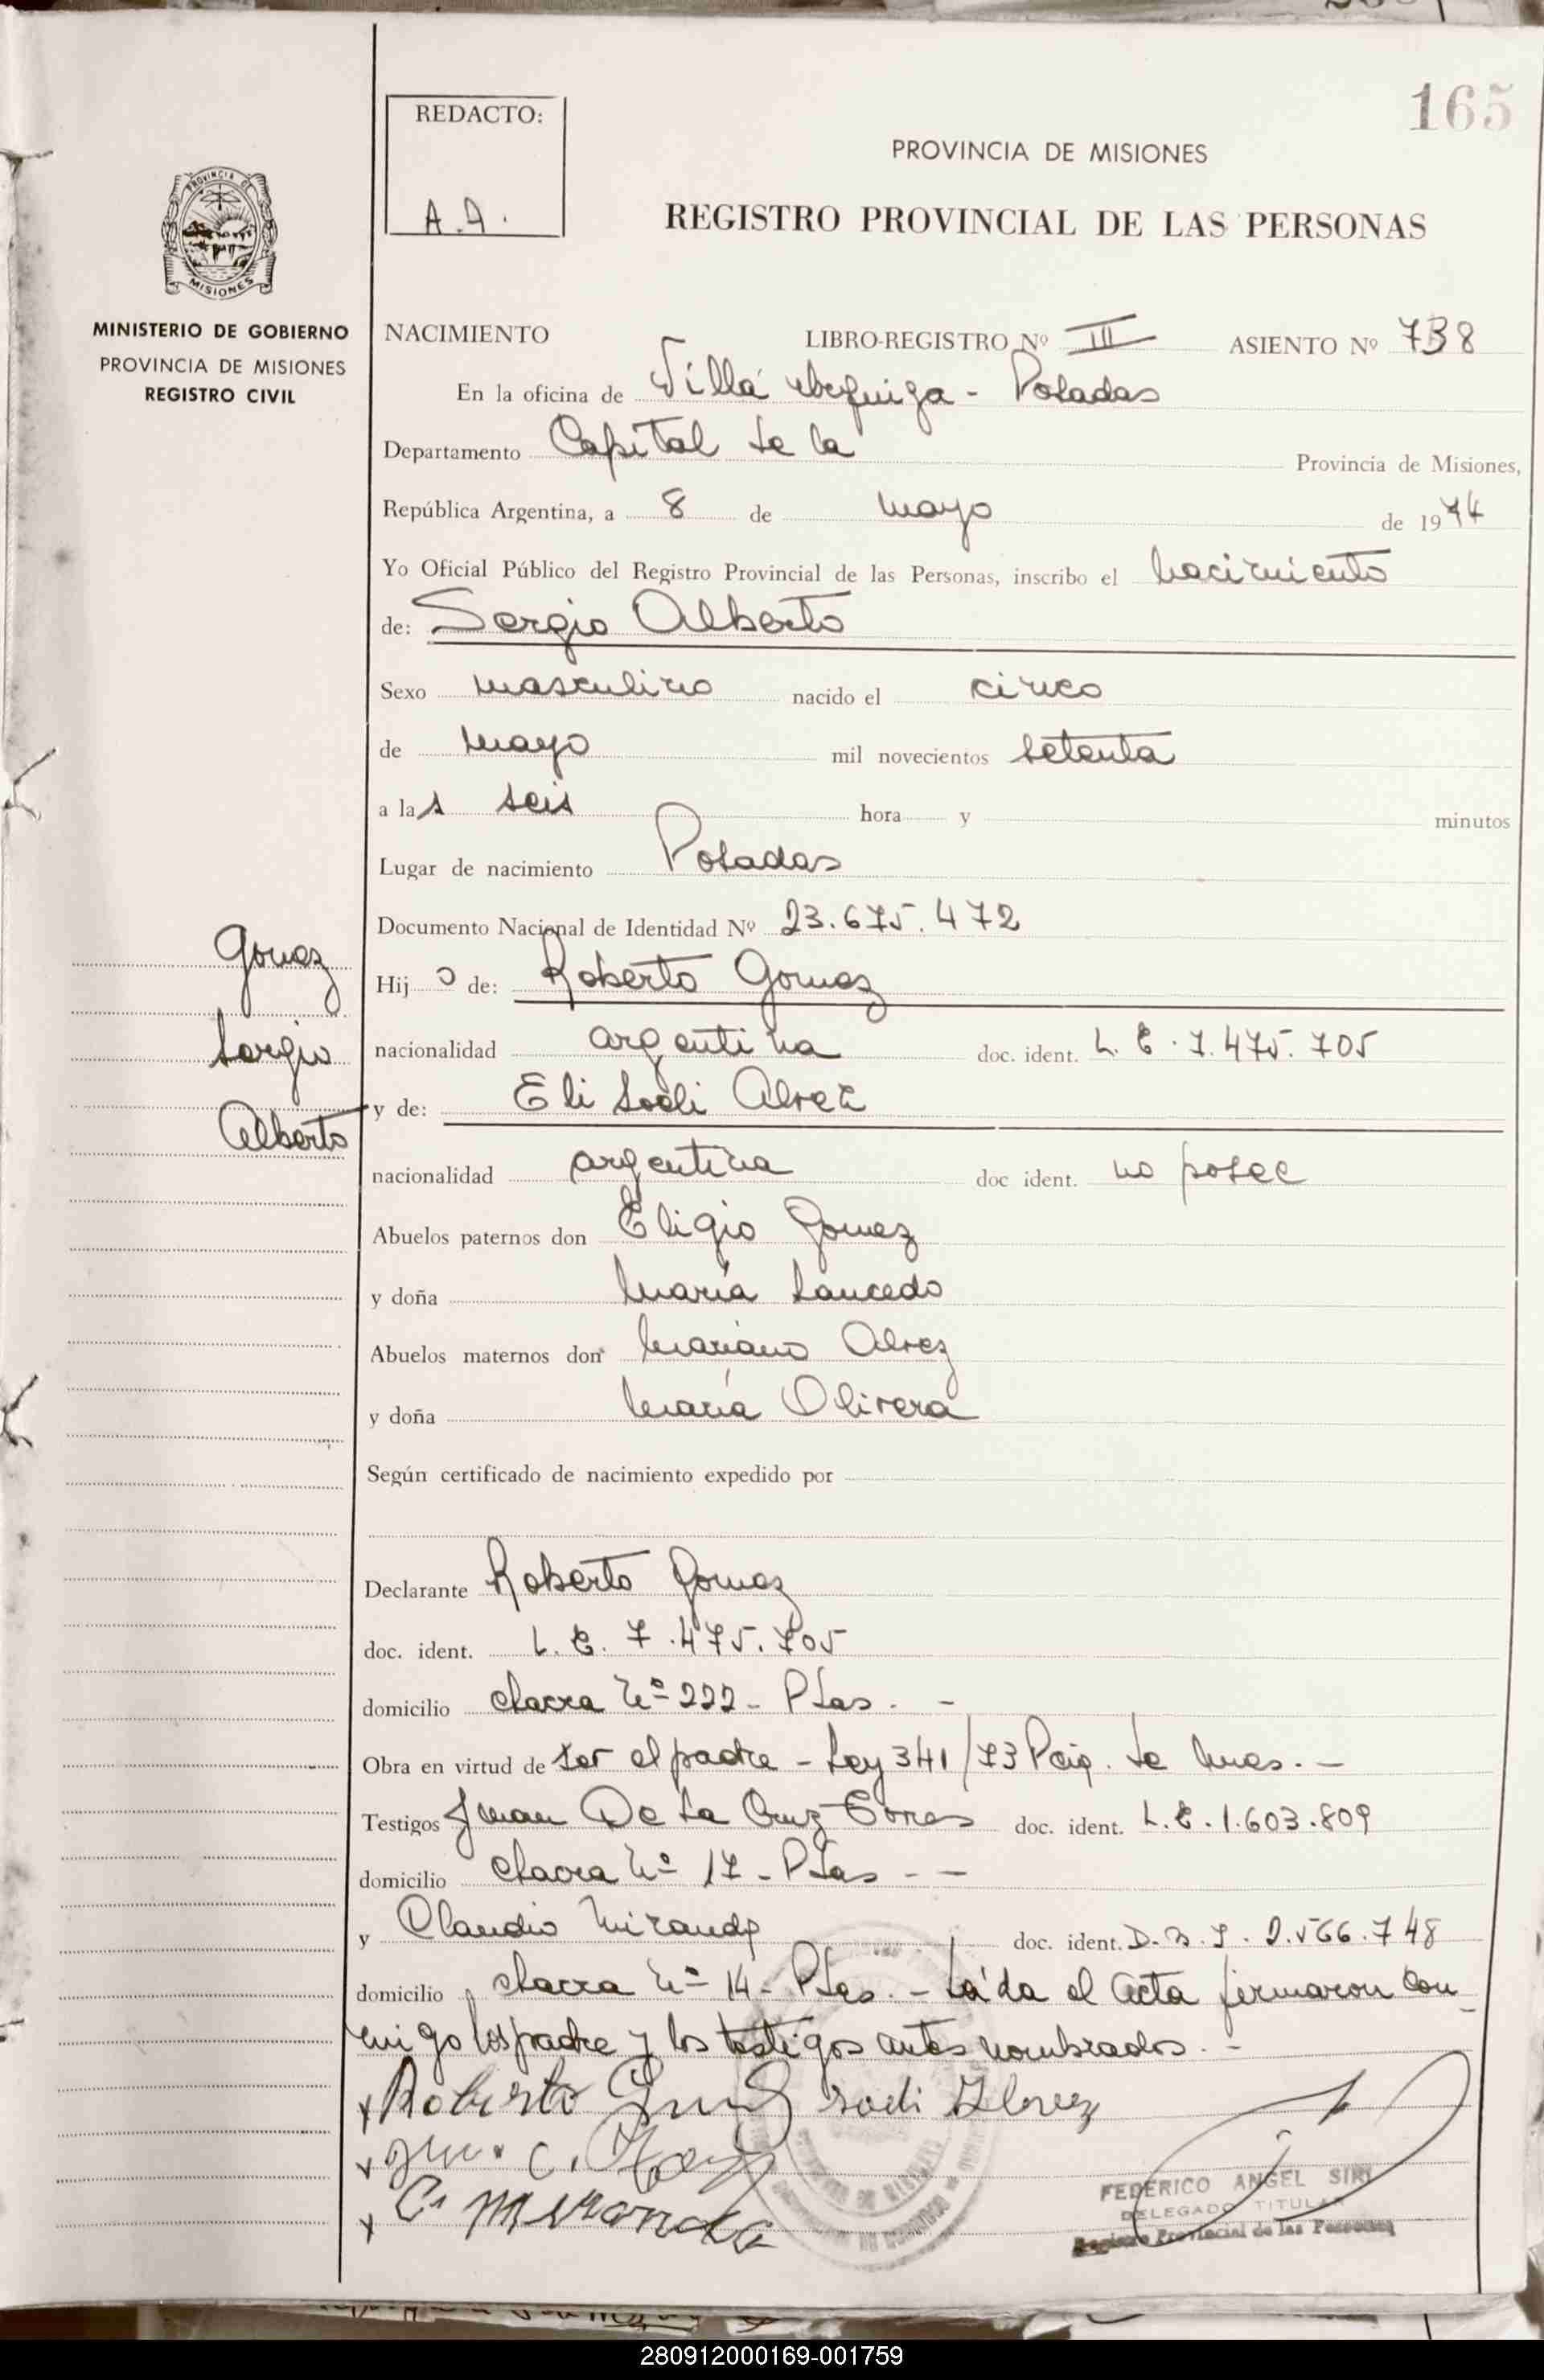 165
REDACTO:
A.A.
PROVINCIA DE MISIONES
REGISTRO PROVINCIAL DE LAS PERSONAS
PROVINCIA DE
MISIONES
MINISTERIO DE GOBIERNO
PROVINCIA DE MISIONES
REGISTRO CIVIL
NACIMIENTO LIBRO-REGISTRO Nº III ASIENTO Nº 738
En la oficina de Villa Urquiza - Posadas
Departamento Capital de la Provincia de Misiones,
República Argentina, a 8 de mayo de 1974
Yo Oficial Público del Registro Provincial de las Personas, inscribo el nacimiento
de: Sergio Alberto
Sexo masculino nacido el cinco
de mayo mil novecientos setenta
a las seis hora y minutos
Lugar de nacimiento Posadas
Documento Nacional de Identidad Nº 23.675.472
Gomez
Sergio
Alberto
Hijo de: Roberto Gomez
nacionalidad argentina doc. ident. L.E. 7.475.705
y de: Eli Sodi Alvez
nacionalidad argentina doc ident. no posee
Abuelos paternos don Eligio Gomez
y doña María Saucedo
Abuelos maternos don Mariano Alvez
y doña María Olivera
Según certificado de nacimiento expedido por
Declarante Roberto Gomez
doc. ident. L.E. 7.475.705
domicilio chacra Nº 222 - Pdas. -
Obra en virtud de ser el padre - Ley 341/73 de Mnes. -
Testigos Juan De La Cruz doc. ident. L.E. 1.603.809
domicilio chacra Nº 17 - Pdas - -
y Claudio Miranda doc. ident. 2.566.748
domicilio chacra Nº 14 - Pdas. - Leída el Acta firmaron con-
migo los padre y los testigos antes nombrados. -
x Roberto Gomez Sodi Alvez
x C.
x C. Miranda
FEDERICO ANGEL SIRI
DELEGADO TITULAR
Registro Provincial de las Personas
280912000169-001759